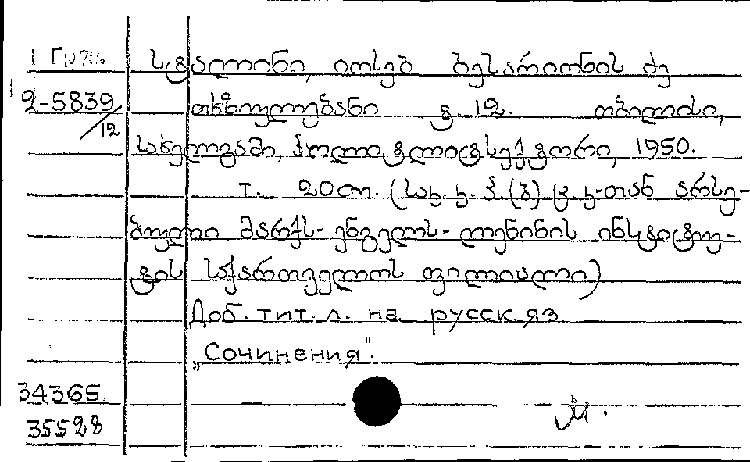 1 Груз. სტალინი, იოსებ ბესარიონის ძე
2-5839/12 თხზულებანი ტ. 12. თბილისი,
სახელგამი, პოლიტლიტსექტორი, 1950.
т. 20 ლ. (საკ. კ. პ. (ბ) ც. კ-თან არსე-
ბული მარქს-ენგელს-ლენინის ინსტიტუ-
ტის საქართველოს ფილიალი)
Доб. тит. л. на русск яз
„Сочинения".
34365.
35528